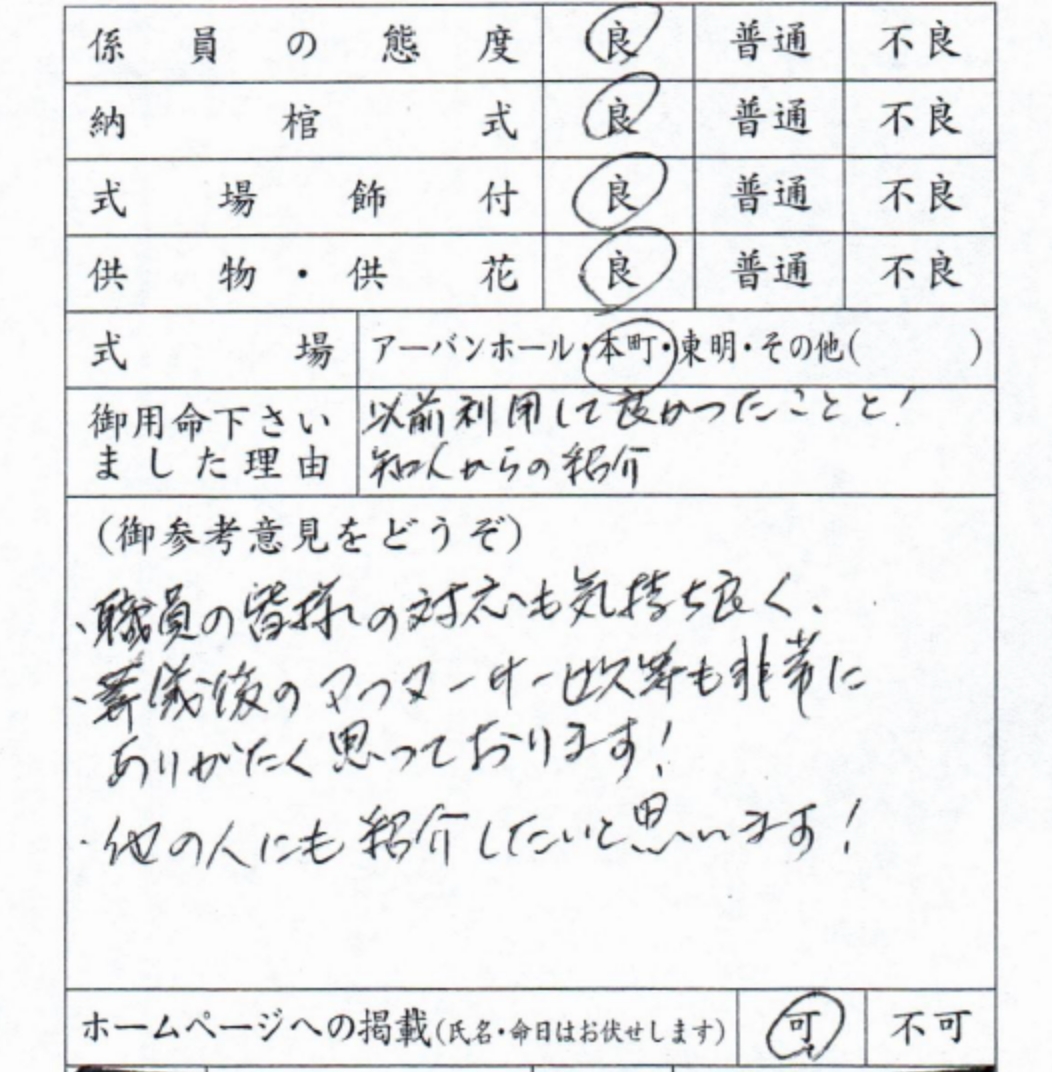 係員の態度 良 普通 不良
納棺式 良 普通 不良
式場飾付 良 普通 不良
供物・供花 良 普通 不良
式場 アーバンホール・本町・東明・その他( )
御用命下さい
ました理由
以前利用して良かったことと!
知人からの紹介
(御参考意見をどうぞ)
・職員の皆様の対応も気持ち良く、
・葬儀後のアフターサービス等も非常に
ありがたく思っております!
・他の人にも紹介したいと思います!
ホームページへの掲載(氏名・命日はお伏せします) 可 不可